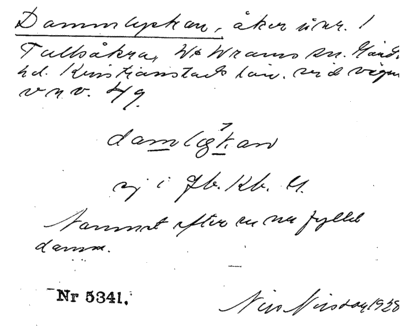 Dammlyckan, åker å nr. 1
Tullsåkra, V. Vrams sn. Gärds
hd. Kristianstads län. vid vägen
v n v. 4/9.
damlykan
ej i Jb. Kb. U.
Namnet efter en nu fylld
damm.
Nr 5341.
Nils Nilsson, 1928